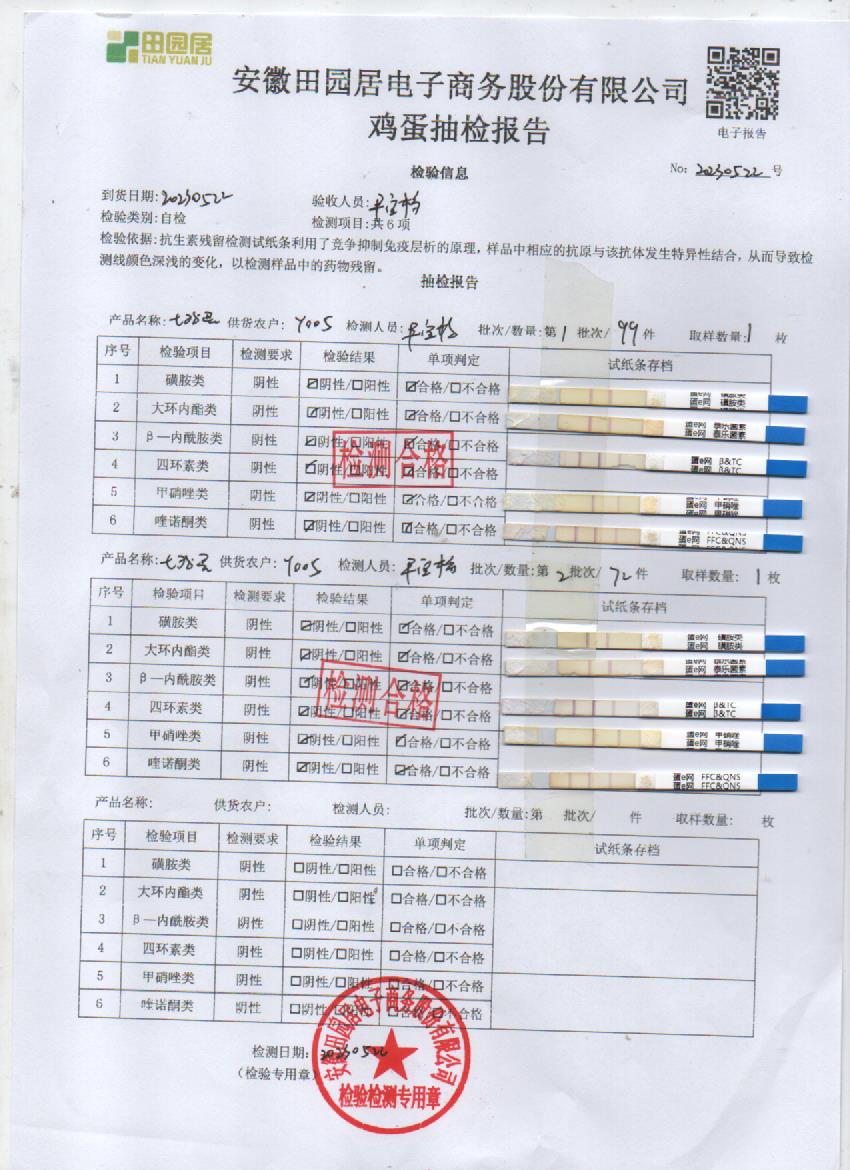 田园居
TIAN YUAN JU
安徽田园居电子商务股份有限公司
鸡蛋抽检报告
电子报告
检验信息
No: 20230522 号
到货日期: 20230522 验收人员:
检验类别: 自检 检测项目: 共 6 项
检验依据: 抗生素残留检测试纸条利用了竞争抑制免疫层析的原理，样品中相应的抗原与该抗体发生特异性结合，从而导致检
测线颜色深浅的变化，以检测样品中的药物残留。
抽检报告
产品名称: 供货农户: Y005 检测人员: 批次/数量: 第 1 批次/ 99 件 取样数量: 1 枚
序号 检验项目 检测要求 检验结果 单项判定 试纸条存档
1 磺胺类 阴性 ☑阴性/☐阳性 ☑合格/☐不合格 蛋e网 磺胺类
2 大环内酯类 阴性 ☑阴性/☐阳性 ☑合格/☐不合格 蛋e网 泰乐菌素
3 β—内酰胺类 阴性 ☑阴性/☐阳性 ☑合格/☐不合格 蛋e网 β&TC
4 四环素类 阴性 ☑阴性/☐阳性 ☑合格/☐不合格
5 甲硝唑类 阴性 ☑阴性/☐阳性 ☑合格/☐不合格 蛋e网 甲硝唑
6 喹诺酮类 阴性 ☑阴性/☐阳性 ☑合格/☐不合格 蛋e网 FFC&QNS
检测合格
产品名称: 供货农户: Y005 检测人员: 批次/数量: 第 2 批次/ 72 件 取样数量: 1 枚
序号 检验项目 检测要求 检验结果 单项判定 试纸条存档
1 磺胺类 阴性 ☑阴性/☐阳性 ☑合格/☐不合格 蛋e网 磺胺类
2 大环内酯类 阴性 ☑阴性/☐阳性 ☑合格/☐不合格 蛋e网 泰乐菌素
3 β—内酰胺类 阴性 ☑阴性/☐阳性 ☑合格/☐不合格
4 四环素类 阴性 ☑阴性/☐阳性 ☑合格/☐不合格 蛋e网 β&TC
5 甲硝唑类 阴性 ☑阴性/☐阳性 ☑合格/☐不合格 蛋e网 甲硝唑
6 喹诺酮类 阴性 ☑阴性/☐阳性 ☑合格/☐不合格 蛋e网 FFC&QNS
检测合格
产品名称: 供货农户: 检测人员: 批次/数量: 第 批次/ 件 取样数量: 枚
序号 检验项目 检测要求 检验结果 单项判定 试纸条存档
1 磺胺类 阴性 ☐阴性/☐阳性 ☐合格/☐不合格
2 大环内酯类 阴性 ☐阴性/☐阳性 ☐合格/☐不合格
3 β—内酰胺类 阴性 ☐阴性/☐阳性 ☐合格/☐不合格
4 四环素类 阴性 ☐阴性/☐阳性 ☐合格/☐不合格
5 甲硝唑类 阴性 ☐阴性/☐阳性 ☐合格/☐不合格
6 喹诺酮类 阴性 ☐阴性/☐阳性 ☐合格/☐不合格
检测日期: 20230522
（检验专用章）
安徽田园居电子商务股份有限公司
检验检测专用章